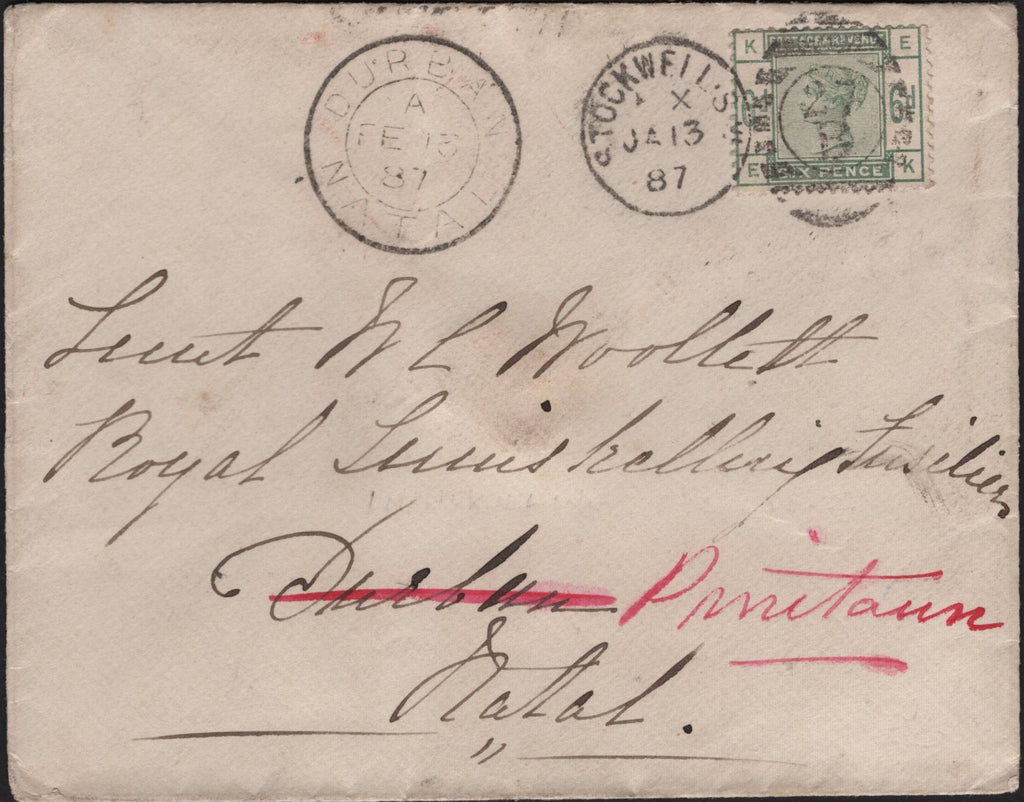 DURBAN
A
FE 13
87
NATAL
STOCKWELL.S
X
JA 13
87
K POSTAGE & REVENUE E
E SIX PENCE K
Lieut W C Woollett
Royal Inniskelling Fusiliers
Durban Pmritaun
Natal.